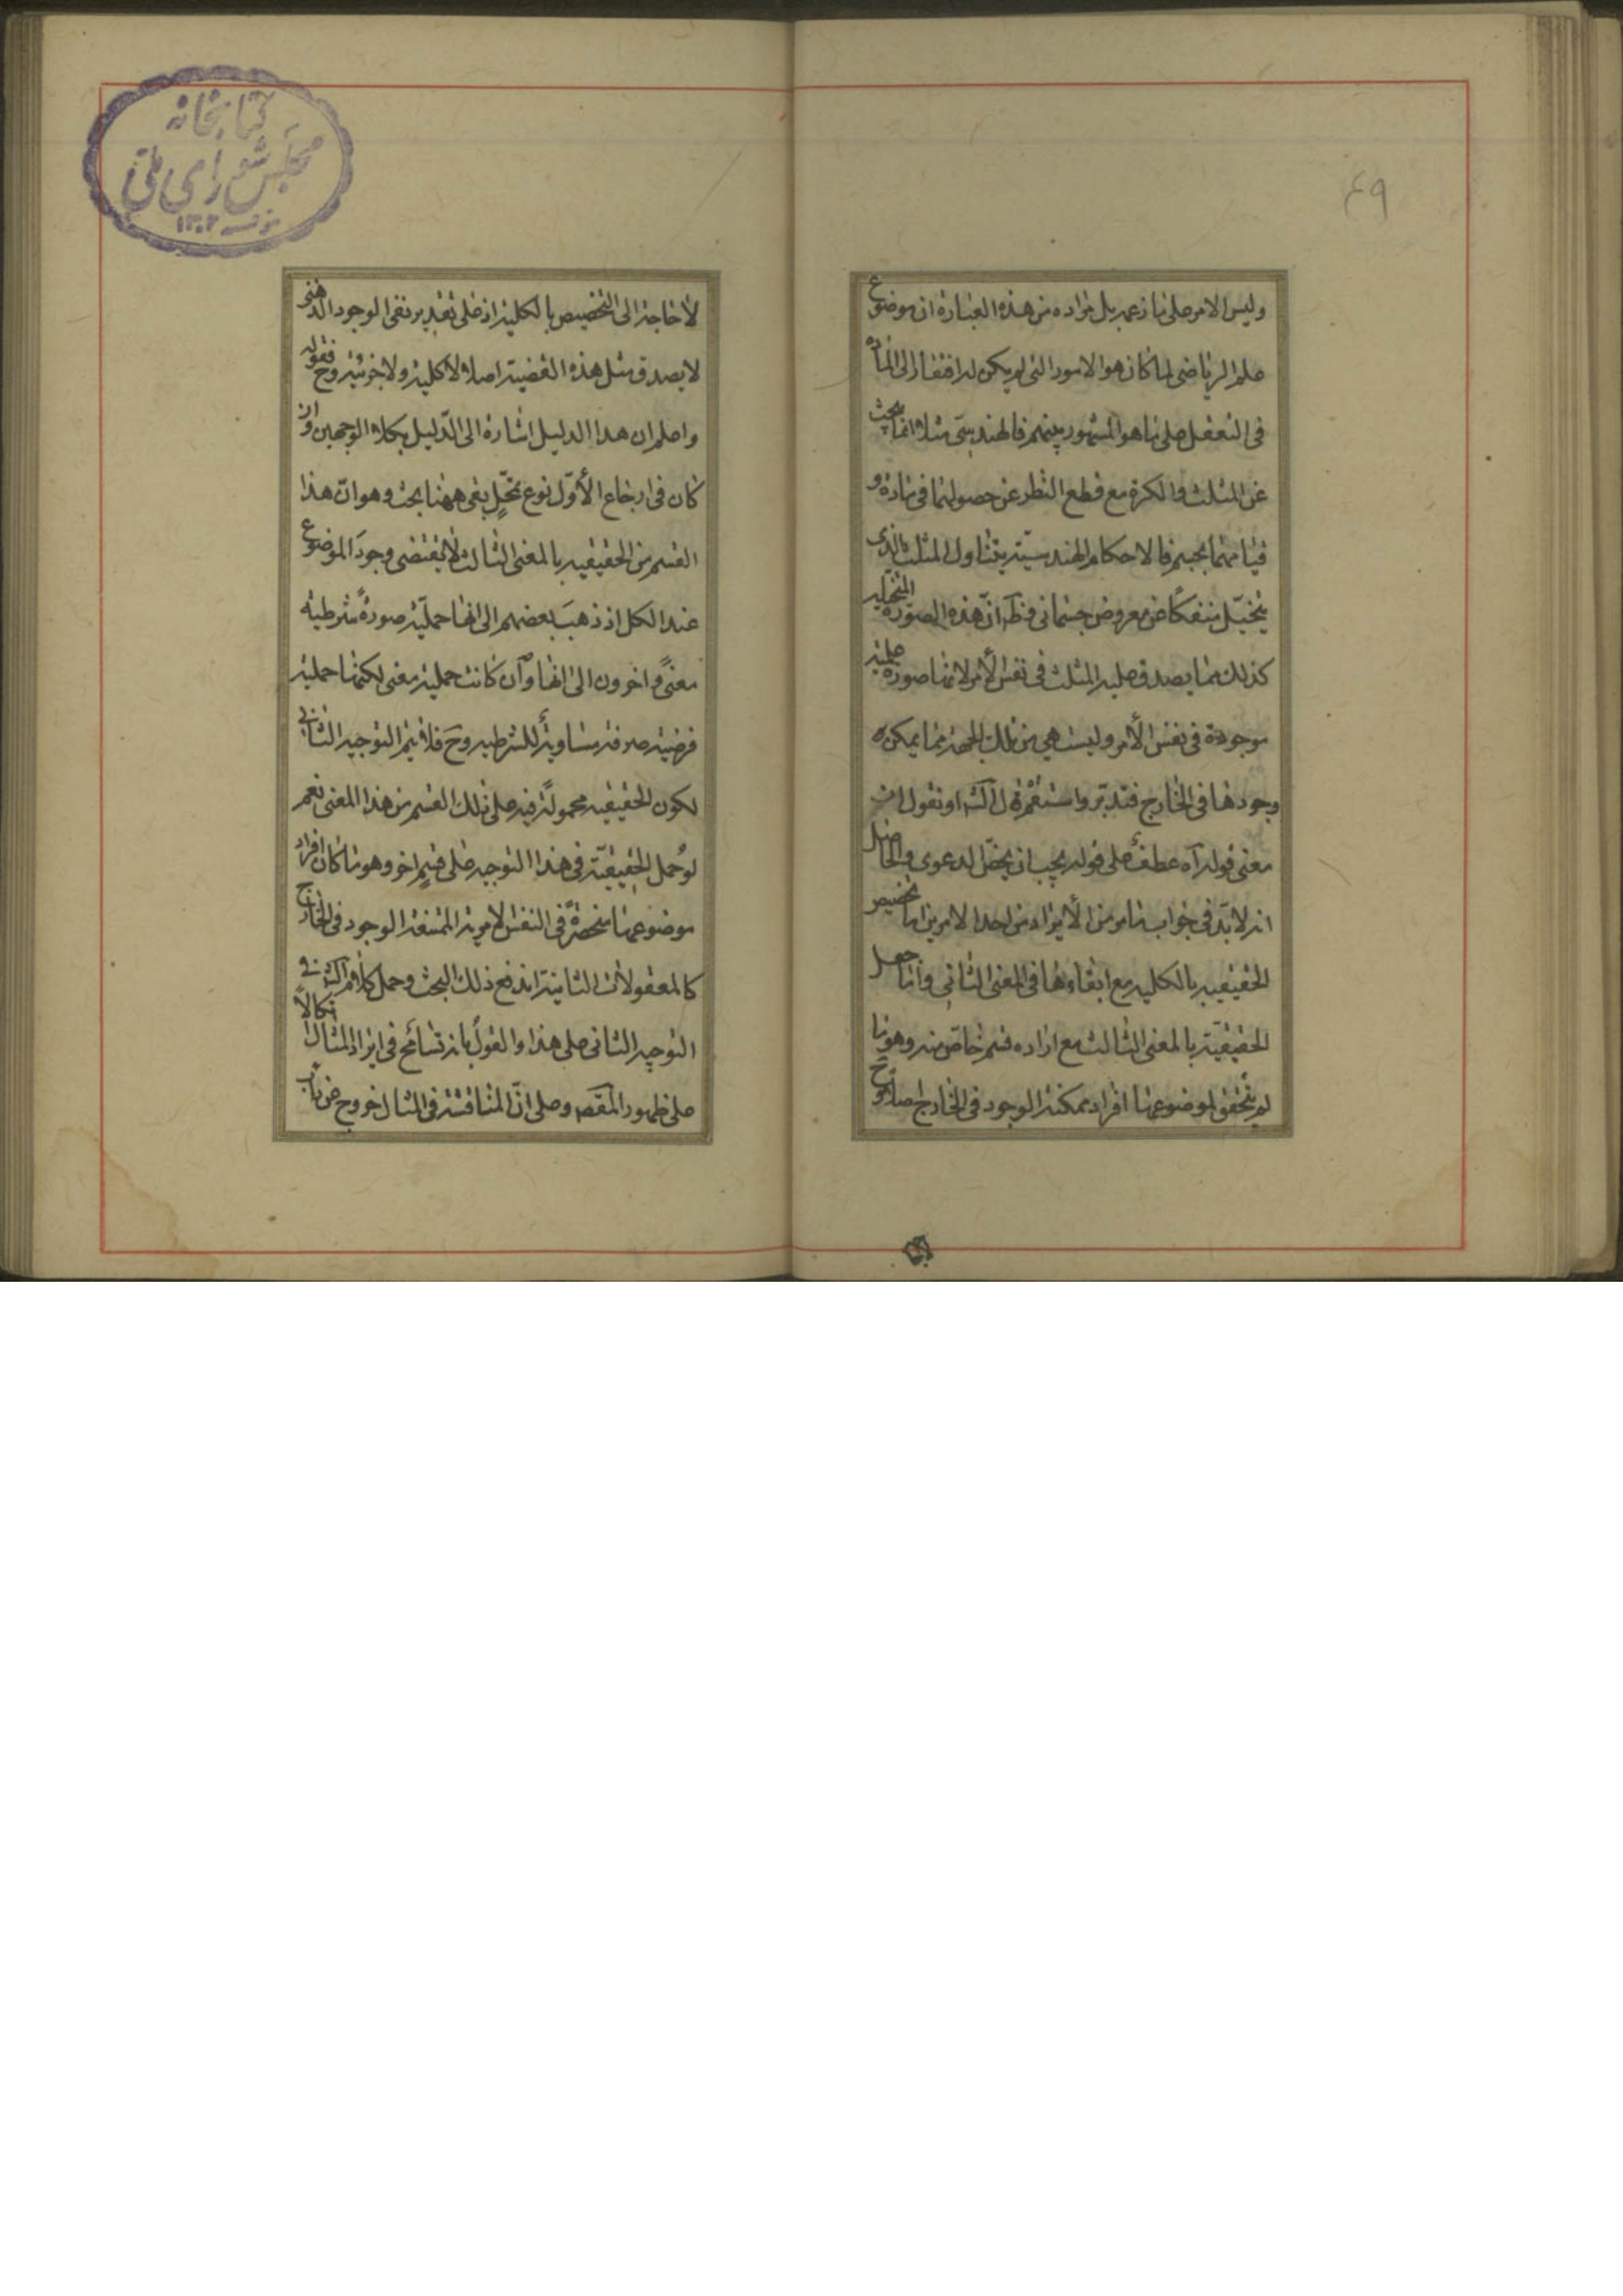 ٤٩
وليس الامر على ما زعمه بل مراده من هذه العبارة ان موضوع
علم الرياضى لما كان هو الامور التى لم يكن له افتقار الى المادة
فى التعقل على ما هو المشهور بينهم فالهندسىّ مثلا انما يبحث
عن المثلث والكرة مع قطع النظر عن حصولهما فى مادة و
قيامهما بجسم فالاحكام الهندسيّة يتناول المثلث الذى
يتخيّل منفكا عن معروض جسمانى فظهر انّ هذه الصورة المتخيلة
كذلك مما يصدق عليه المثلث فى نفس الأمر لانها صورة علمية
موجودة فى نفس الأمر وليست هى من تلك الجهة مما يمكن
وجودها فى الخارج فتدبّر واستقم قال او نقول ان
معنى قوله آه عطف على قوله يجب ان يخصّ الدعوى والحاصل
انه لا بدّ فى جواب ما مر من الأيراد من احد الامرين اما تخصيص
الحقيقية بالكلية مع ابقاءها فى المعنى الثانى وامّا جعل
الحقيقيّة بالمعنى الثالث مع ارادة قسم خاصّ منه وهو ما
لم يتحقق لموضوعها افراد ممكنة الوجود فى الخارج اصلا وح
كتابخانه
مجلس شوراى ملى
١٣٠٢
لا حاجة الى التخصيص بالكلية اذ على تقدير نفى الوجود الذهنى
لا يصدق مثل هذه القضية اصلا لا كلية ولا جزئية وح فقوله
واعلم ان هذا الدليل اشارة الى الدّليل بكلا الوجهين وان
كان فى ارجاع الأوّل نوع تمحّل بقى ههنا بحث وهو انّ هذا
القسم من الحقيقيه بالمعنى الثالث لا يقتضى وجود الموضوع
عند الكل اذ ذهب بعضهم الى انها حمليّة صورة شرطية
معنىً واخرون الى انها وان كانت حملية معنى لكنها حملية
فرضية صرفة مساوية للشرطيه وح فلا يتم التوجيه الثانى
لكون الحقيقيه محمولة فيه على ذلك القسم من هذا المعنى نعم
لو حمل الحقيقيّة فى هذا التوجيه على قسم اخر وهو ما كان افراد
موضوعها منحصرة فى النفس الامرية الممتنعة الوجود فى الخارج
كالمعقولات الثانية اندفع ذلك البحث وحمل كلام فى
التوجيه الثانى على هذا والقول بانه تسامح فى ايراد المثال اتكالا
على ظهور المقصد وعلى انّ المناقشة فى المثال خروج عن